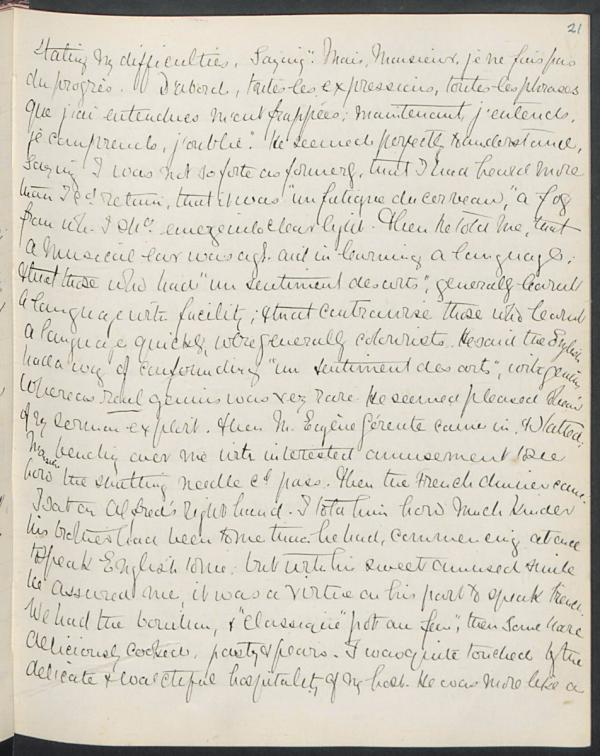 21
stating my difficulties, saying "Mais, Monsieur, je ne fais pas
du progrès. D'abord, toutes les expressions, toutes les phrases
que j'ai entendues m'ont frappées; maintenant, j'entends,
je comprends, j'oublie". He seemed perfectly to understand,
saying I was not so forte as formerly, that I had heard more
than I cd retain, that it was "un fatigue du cerveau", "a fog
from wh. I shd. emerge into clear light. Then he told me, that
a musical ear was a gt. aid in learning a language;
& that those who had "un sentiment des arts", generally learnt
a language with facility; & that contrariwise those who learnt
a language quickly, were generally colourists. He said the English
had a way of confounding "un sentiment des arts", with genius
whereas real genius was very rare. He seemed pleased
of my sermon exploit. Then M. Eugène Gérente came in, & I tatted,
bending over me with interested amusement to see
how the shutting needle cd pass. Then the French dinner came.
I sat on Alfred's right hand. I told him how much kinder
his brother had been to me than he had, commencing at once
to speak English to me; but with his sweet amused smile
he assured me, it was a virtue on his part to speak French.
We had the bouillon, & "classique" pot au feu", then some hare
deliciously cooked, pasty & pears. I was quite touched by the
delicate & watchful hospitality of my host. He was more like a